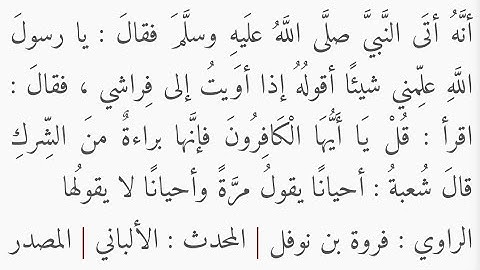 أنَّهُ أتَى النَّبيَّ صلَّى اللَّهُ علَيهِ وسلَّمَ فقالَ : يا رسولَ
اللَّهِ علِّمني شيئًا أقولُهُ إذا أوَيتُ إلى فِراشي ، فقالَ :
اقرأ : قُلْ يَا أَيُّهَا الْكَافِرُونَ فإنَّها براءةٌ منَ الشِّركِ
قالَ شُعبةُ : أحيانًا يقولُ مرَّةً وأحيانًا لا يقولُها
الراوي : فروة بن نوفل | المحدث : الألباني | المصدر